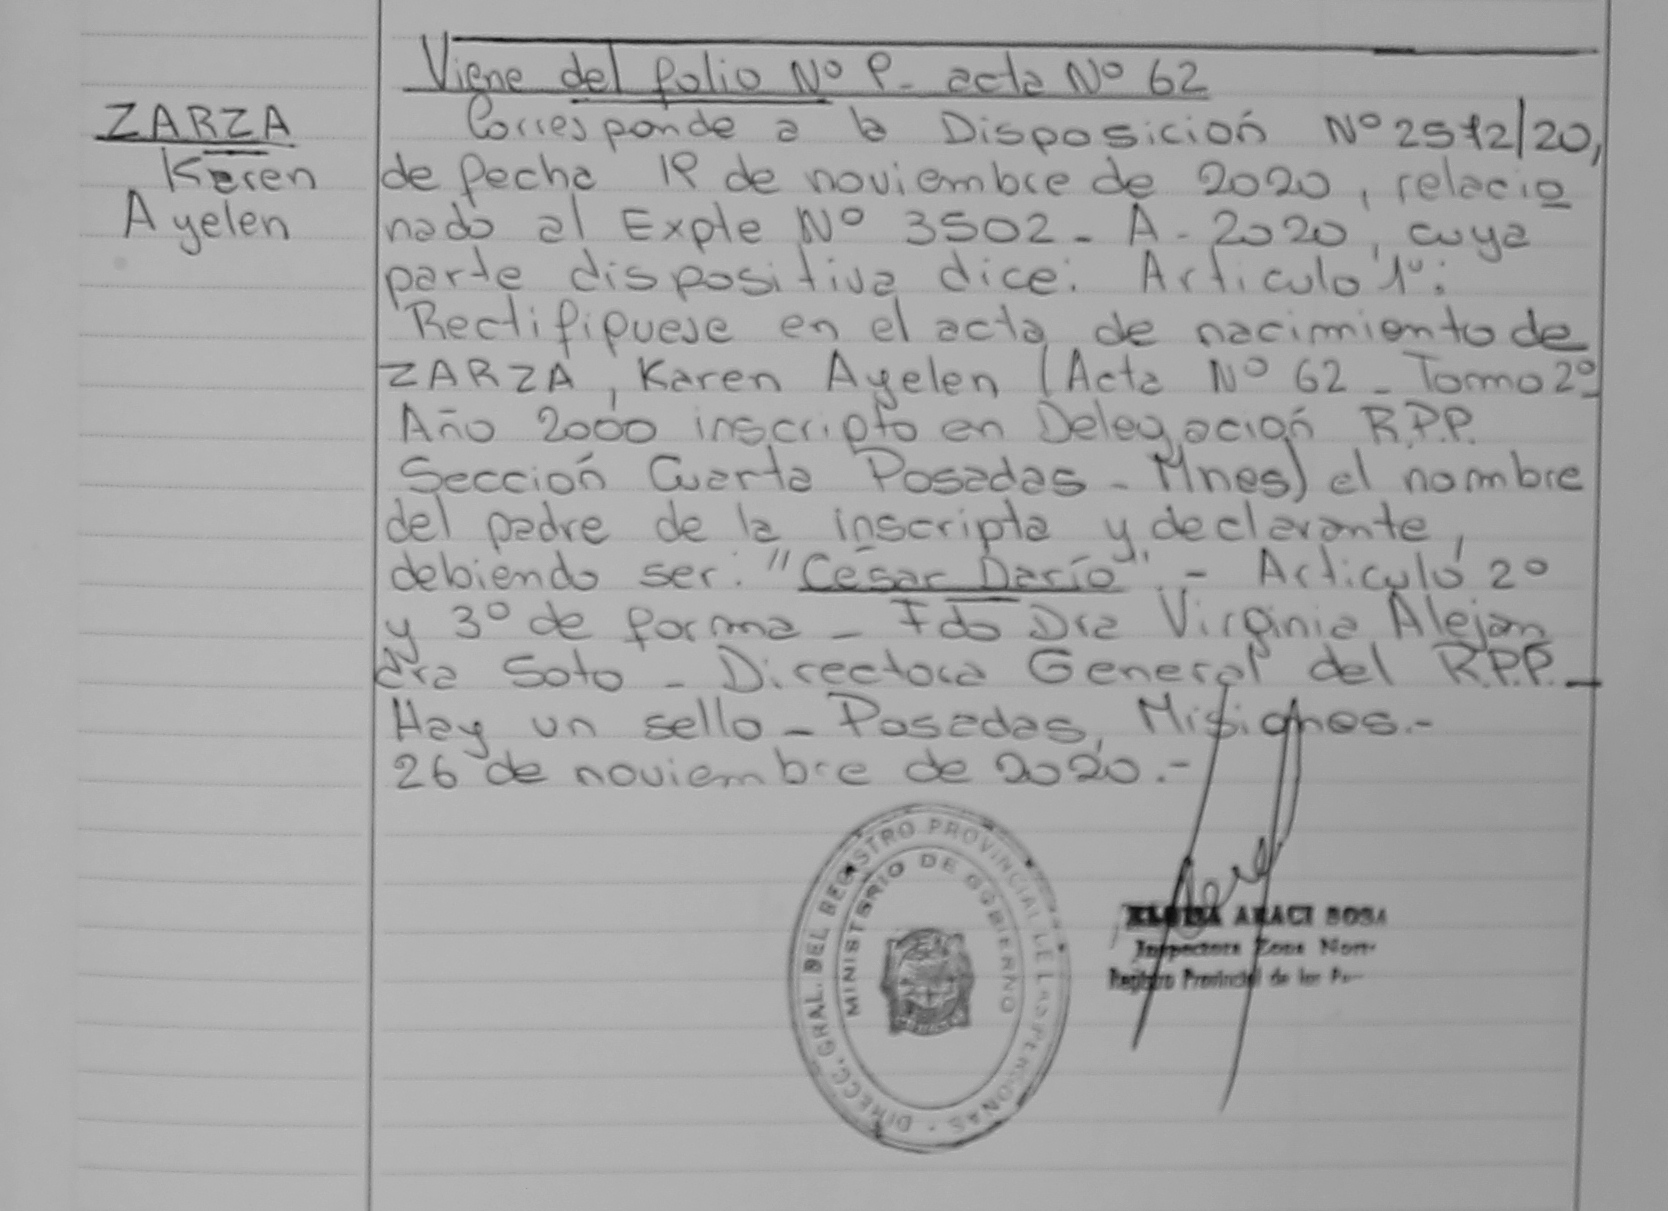 Viene del folio Nº 9- acta Nº 62
ZARZA
Karen
Ayelen
Corresponde a la Disposición Nº 2512/20,
de fecha 19 de noviembre de 2020, relacio
nado al Expte Nº 3502- A- 2020, cuya
parte dispositiva dice: Articulo 1º:
Rectifiquese en el acta de nacimiento de
ZARZA, Karen Ayelen (Acta Nº 62 - Tomo 2º
Año 2000 inscripto en Delegación R.P.P.
Sección Cuarta Posadas - Mnes) el nombre
del padre de la inscripta y declarante,
debiendo ser: "César Darío".- Articulo 2º
y 3º de forma - Fdo Dra Virginia Alejan
dra Soto - Directora General del R.P.P. -
Hay un sello - Posadas, Misiones.-
26 de noviembre de 2020.-
DIRECC. GRAL. DEL REGISTRO PROVINCIAL DE LAS PERSONAS
MINISTERIO DE GOBIERNO
ARACI SOSA
Inspectora Zona
Registro Provincial de las